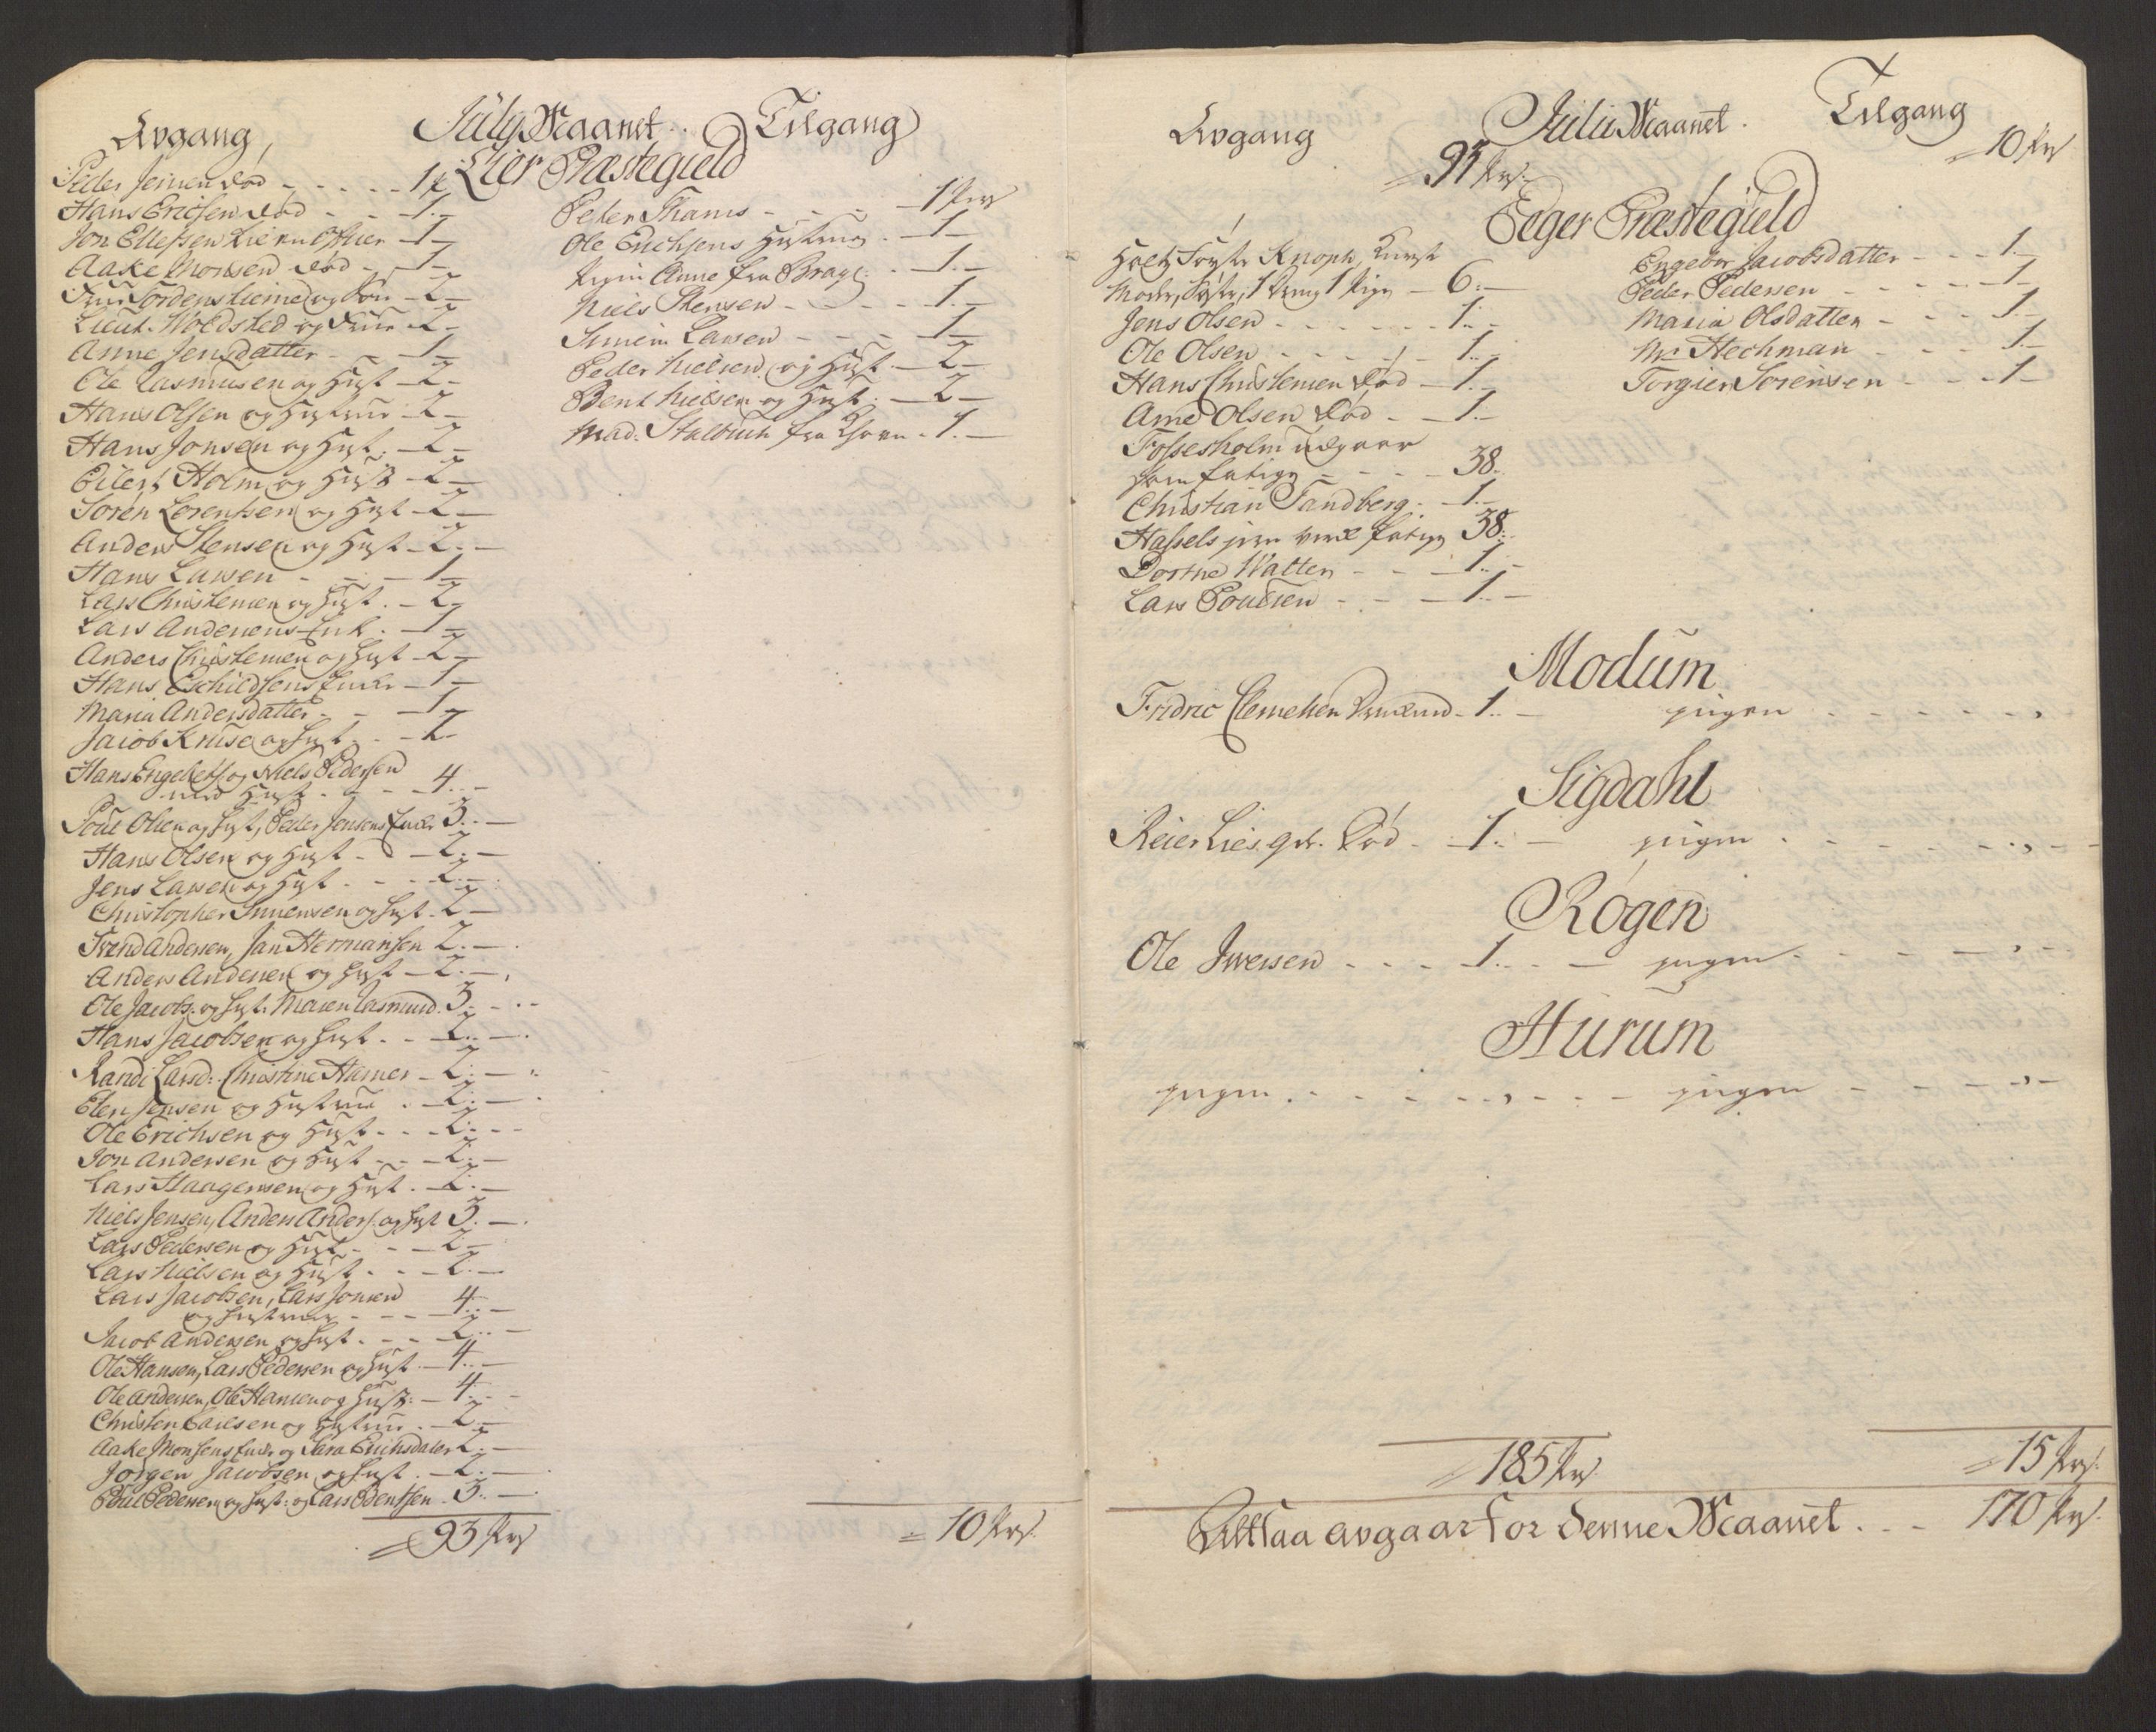 Avgang, July Maanet. Tilgang
Lier Præstegield
Peder Jensen død - - - - 1 P
Hans Ericsen død - - 1. -
Jon Ellefsen - 1 -
Aake Monsen død - 1 -
Frue Tordenskiolds og - 2 -
Lieut. Woldsted og Frue - 2 -
Anne Jensdatter - - 1 -
Ole Rasmusen og Hust - 2 -
Hans Olsen og Hustrue - 2 -
Hans Jonsen og Hust. - 2 -
Eilert Holm og Hust - 2 -
Sören Lorentsen og Hust - 2 -
Anders Stensen og Hust - 2. -
Hans Larsen - - - 1 -
Lars Christensen og Hust. - 2 -
Lars Andersens Enk. - 1 -
Anders Christensen og Hust - 2 -
Hans Eschildsens Encke - 1 -
Maria Andersdatter - - 1 -
Jacob Kruse og Hust. - 2
Hans Engebrets og Niels Pedersen
med Hust. - - - 4. -
Poul Olsen og Hust, Peder Jensens Encke 3. -
Hans Olsen og Hust - - 2. -
Jens Larsen og Hust. - - 2. -
Christopher Simensen og Hust. 2 -
Svend Andersen, Jan Hermansen 2. -
Anders Andersen og Hust - 2. -
Ole Jacobs: og Hust. Maren Rasmusd. 3. -
Hans Jacobsen og Hust. - - 2. -
Randi Larsd: Christine Hamer - 2. -
Elen Jensen og Hustrue. - 2. -
Ole Erichsen og Hust - - 2. - -
Jon Andersen og Hust - - 2. -
Lars Haagensen og Hust. - 2. -
Niels Jensen, Anders Anders: og Hust 3. -
Lars Pedersen og Hust - - 2 -
Lars Nielsen og Hust - - - 2. -
Lars Jacobsen, Lars Jonsen
og Hustruer - - - 4. -
Jacob Andersen og Hust. - - - 2. -
Ole Hansen, Lars Pedersen og Hust - 4. -
Ole Andersen, Ole Hansen og Hust: - 4. -
Christen Carlsen og Hustrue - 2. -
Aake Monsens Encke og Sara Erichsdater 2. -
Jörgen Jacobsen og Hust. - 2. -
Poul Pedersen og Hust: og Lars Bentsen 3. -
= 93 Prs
Peder Thams - - - - 1 Prs
Ole Erichsens Hustrue - 1 -
Anne fra Brag: - 1. -
Niels Stensen - - - - 1. -
Simen Larsen - - - 1 -
Peder Nielsen og Hust. - 2 -
Bent Nielsen og Hust. - 2 -
Mad: fra - 1. -
= 10 Prs.
Avgang Julii Maanet. Tilgang
= 93 Prs. = 10 Prs
Eeger Præstegield
Knoph,
Moder, Söster, 1 Dreng 1 Pige - 6. -
Jens Olsen - - - - - - 1. -
Ole Olsen - - - - - 1. -
Hans Christensen död - 1. -
Arne Olsen död - - 1. -
Fossesholm udgaar
som fattige - - - - 38.
Christian Sandberg. - 1. -
Hassels jern verk fattige 38.
Dorthe Watten - - - 1. -
Lars Poulsen - - - 1. -
Engebor Jacobsdatter - - - 1. -
Peder Pedersen - - - - - 1 -
Maria Olsdatter - - - 1 -
Mr Heckman - - - - 1 -
Torgier Sörensen - - - 1 -
Modum
Fridric Clemetsen - 1. - ingen - - - - - - ,
Sigdahl
Reier Lies död - 1. - ingen - - - - - - , - -
Rögen
Ole Iversen - - - 1. - - ingen - - - - - , -
Hurum
ingen. - - - - - , - - - ingen - - - - , -
= 185 Prs. = 15 Prs.
Altsaa avgaar for denne Maanet. - - 170 Prs.